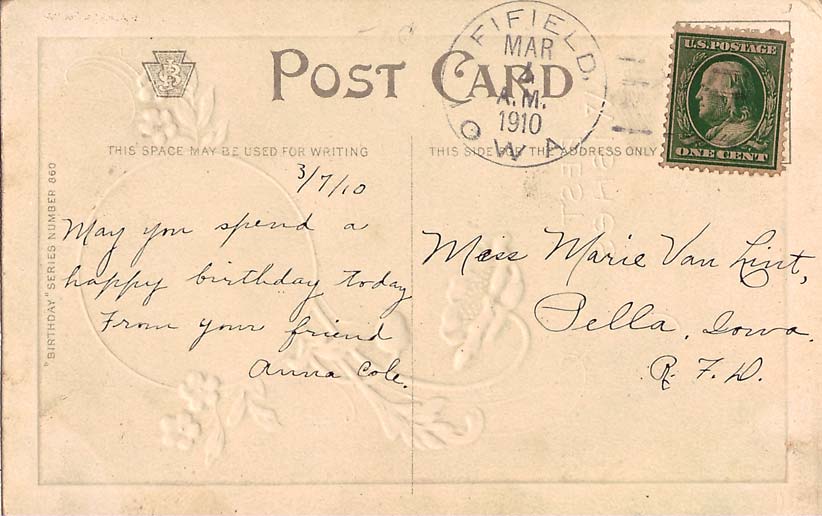 POST CARD
FIFIELD,
MAR
A.M.
1910
IOWA
U.S. POSTAGE
ONE CENT
THIS SPACE MAY BE USED FOR WRITING
THIS SIDE FOR THE ADDRESS ONLY
"BIRTHDAY" SERIES NUMBER 860
3/7/10
May you spend a
happy birthday today
From your friend
Anna Cole.
Miss Marie Van Lint,
Pella, Iowa.
R. F. D.